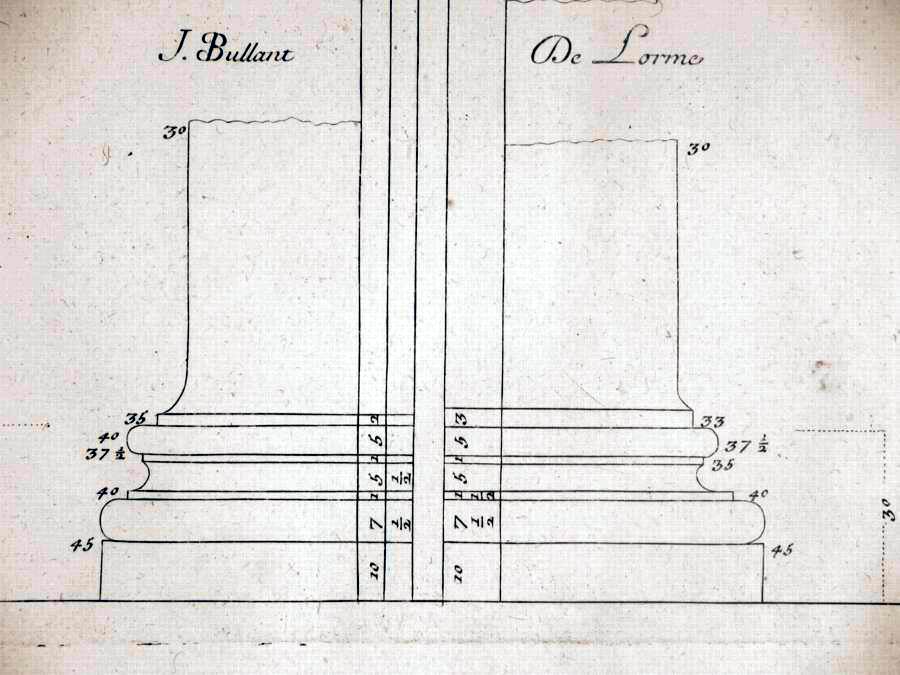 J. Bullant
De Lorme
30
30
35 2 3 33
40 5 5 37 ½
37 ½ 1 1 35
5 ½ 5
40 1 1 ½ 40
7 ½ 7 ½ 30
45 45
10 10